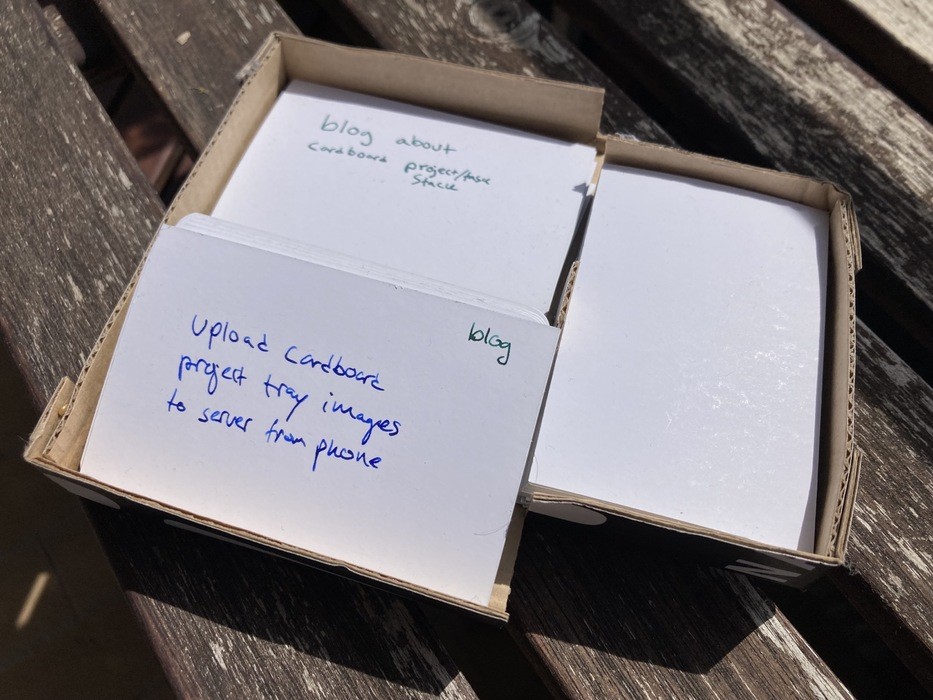 blog about
cardboard project/task
stack
blog
Upload cardboard
project tray images
to server from phone